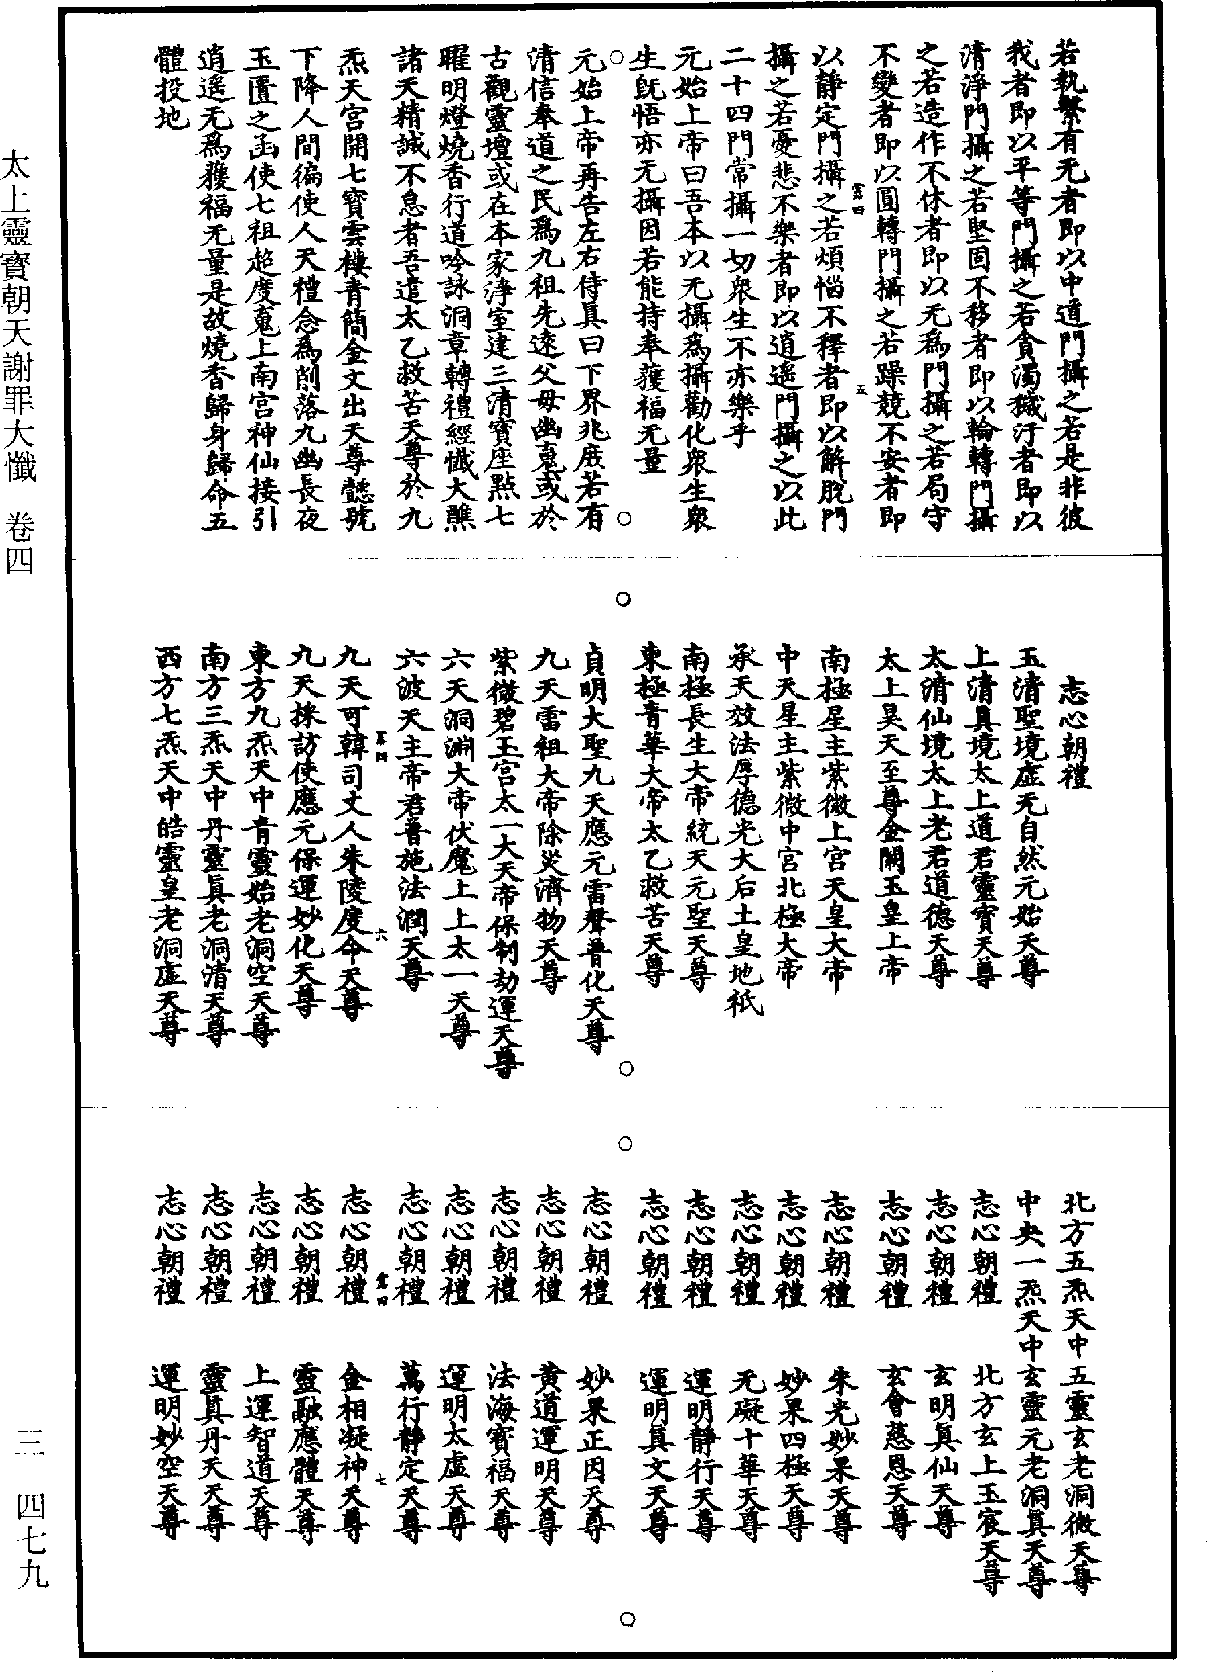 若執繫有无者即以中道門攝之若是非彼
我者即以平等門攝之若貪濁穢汙者即以
清淨門攝之若堅固不移者即以輪轉門攝
之若造作不休者即以无為門攝之若局守
不變者即以圓轉門攝之若躁競不安者即
雲四
五
以靜定門攝之若煩惱不釋者即以解脫門
攝之若憂悲不樂者即以逍遙門攝之以此
二十四門常攝一切衆生不亦樂乎
元始上帝曰吾本以无攝為攝勸化衆生衆
生旣悟亦无攝因若能持奉蕿福无量
元始上帝再告左右侍真曰下界兆庶若有
清信奉道之民為九祖先遠父母幽䰟或於
古觀靈壇或在本家淨室建三清寳座㸃七
曜明燈燒香行道吟詠洞章轉禮經懺大醮
諸天精誠不息者吾遣太乙救苦天尊於九
炁天宮開七寳雲樓青簡金文出天尊懿號
下降人間徧使人天禮念為削落九幽長夜
玉匱之函使七祖超度䰟上南宮神仙接引
逍遥无為獲福无量是故燒香歸身歸命五
體投地
志心朝禮
玉清聖境虚无自然元始天尊
上清真境太上道君靈寳天尊
太清仙境太上老君道德天尊
太上昊天至尊金闕玉皇上帝
南極星主紫微上宮天皇大帝
中天星主紫微中宮北極大帝
承天效法厚德光大后土皇地祇
南極長生大帝統天元聖天尊
東極青華大帝太乙救苦天尊
貞明大聖九天應元雷聲普化天尊
九天雷祖大帝除災濟物天尊
紫微碧玉宮太一大天帝保制劫運天尊
六天洞淵大帝伏魔上上太一天尊
六波天主帝君普施法潤天尊
雲四
六
九天可韓司丈人朱陵度命天尊
九天採訪使應元保運妙化天尊
東方九炁天中青靈始老洞空天尊
南方三炁天中丹靈真老洞清天尊
西方七炁天中皓靈皇老洞虚天尊
北方五炁天中五靈玄老洞微天尊
中央一炁天中玄靈元老洞真天尊
志心朝禮 北方玄上玉宸天尊
志心朝禮 玄明真仙天尊
志心朝禮 玄會慈恩天尊
志心朝禮 朱光妙果天尊
志心朝禮 妙果四極天尊
志心朝禮 无礙十華天尊
志心朝禮 運明靜行天尊
志心朝禮 運明真文天尊
志心朝禮 妙果正因天尊
志心朝禮 黄道運明天尊
志心朝禮 法海寳福天尊
志心朝禮 運明太虚天尊
志心朝禮 萬行靜定天尊
雲四
七
志心朝禮 金相凝神天尊
志心朝禮 靈融應體天尊
志心朝禮 上運智道天尊
志心朝禮 靈真丹天天尊
志心朝禮 運明妙空天尊
太上靈寶朝天謝罪大懺 卷四
三 四七九